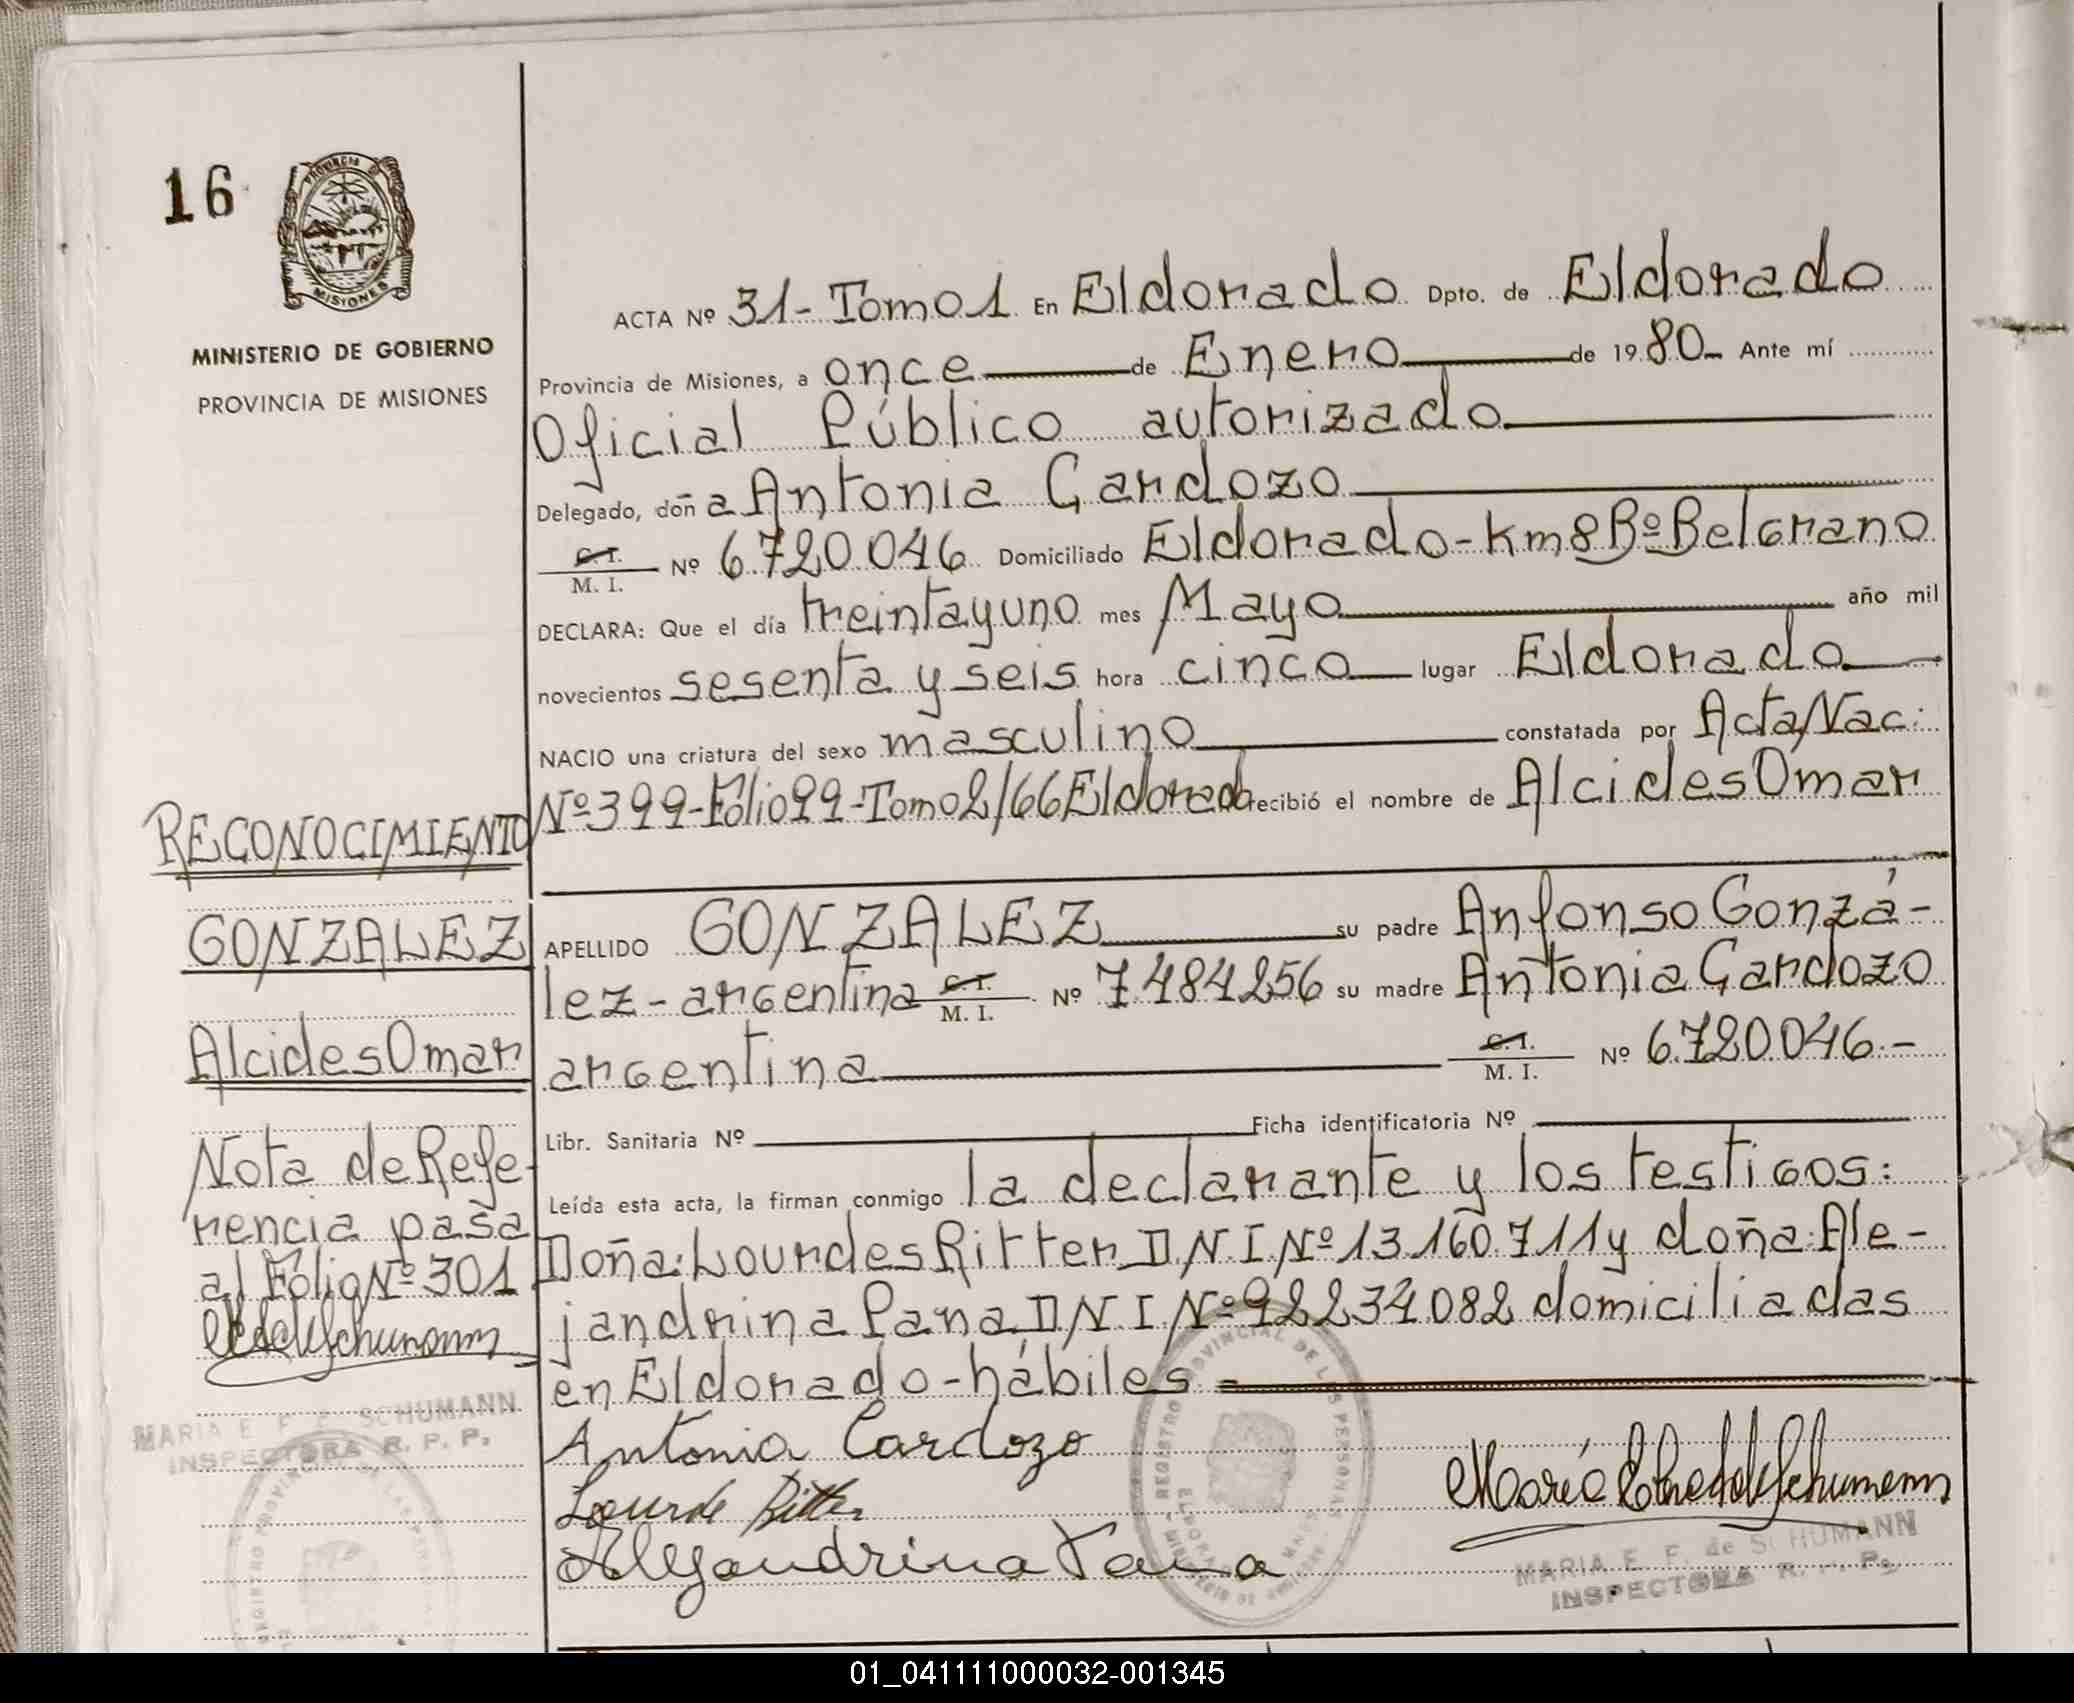 16
PROVINCIA DE
MISIONES
MINISTERIO DE GOBIERNO
PROVINCIA DE MISIONES
ACTA Nº 31-Tomo1 En Eldorado Dpto. de Eldorado
Provincia de Misiones, a once de Enero de 1980 Ante mí
Oficial Público autorizado
Delegado, doña Antonia Cardozo
C.I. M. I. Nº 6720046 Domiciliado Eldorado-Km8Bº Belgrano
DECLARA: Que el día treintayuno mes Mayo año mil
novecientos sesenta y seis hora cinco lugar Eldorado
NACIO una criatura del sexo masculino constatada por Acta Nac:
Nº399-Folio99-Tomo2/66Eldorado recibió el nombre de Alcides Omar
RECONOCIMIENTO
GONZALEZ
Alcides Omar
Nota de Refe-
rencia pasa
al Folio Nº 301
MARIA E. F. de SCHUMANN
INSPECTORA R. P. P.
APELLIDO GONZALEZ su padre Anfonso Gonzá-
lez-argentina C.I. M. I. Nº 7484256 su madre Antonia Cardozo
argentina C.I. M. I. Nº 6720046.-
Libr. Sanitaria Nº Ficha identificatoria Nº
Leída esta acta, la firman conmigo la declarante y los testigos:
Doña: Lourdes Ritter DNI Nº 13.160.711 y doña: Ale-
jandrina Pana DNI Nº 92234082 domiciliadas
en Eldorado-hábiles=
Antonia Cardozo
Lourde Ritter
Alejandrina Pana
REGISTRO PROVINCIAL DE LAS PERSONAS
MARIA E. F. de SCHUMANN
INSPECTORA R. P. P.
01_041111000032-001345